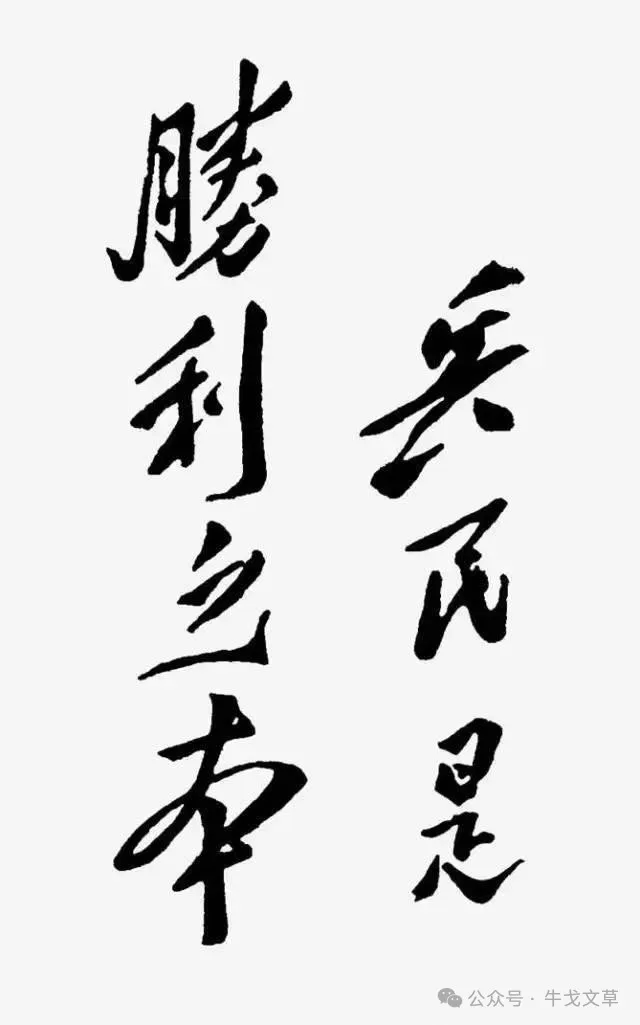 兵民是
勝利之本
公众号 · 牛戈文草